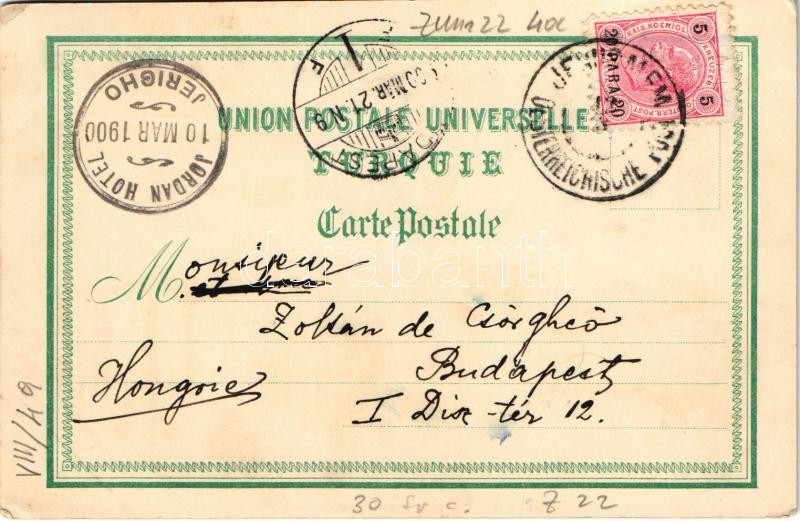 22
KAIS. KOENIGL.
5 KREUZER 5
OESTERR. POST
20 PARA 20
JERUSALEM
OESTERREICHISCHE POST
1
F
00 MAR. 21. N9
BUDAPEST
JORDAN HOTEL
10 MAR 1900
JERICHO
UNION POSTALE UNIVERSELLE
TURQUIE
Carte Postale
darabanth
Monsieur
Zoltán de Csörgheö
Budapest
Hongrie
I Disz-tér 12.
VIII/49
30 Sv c.
Z 22